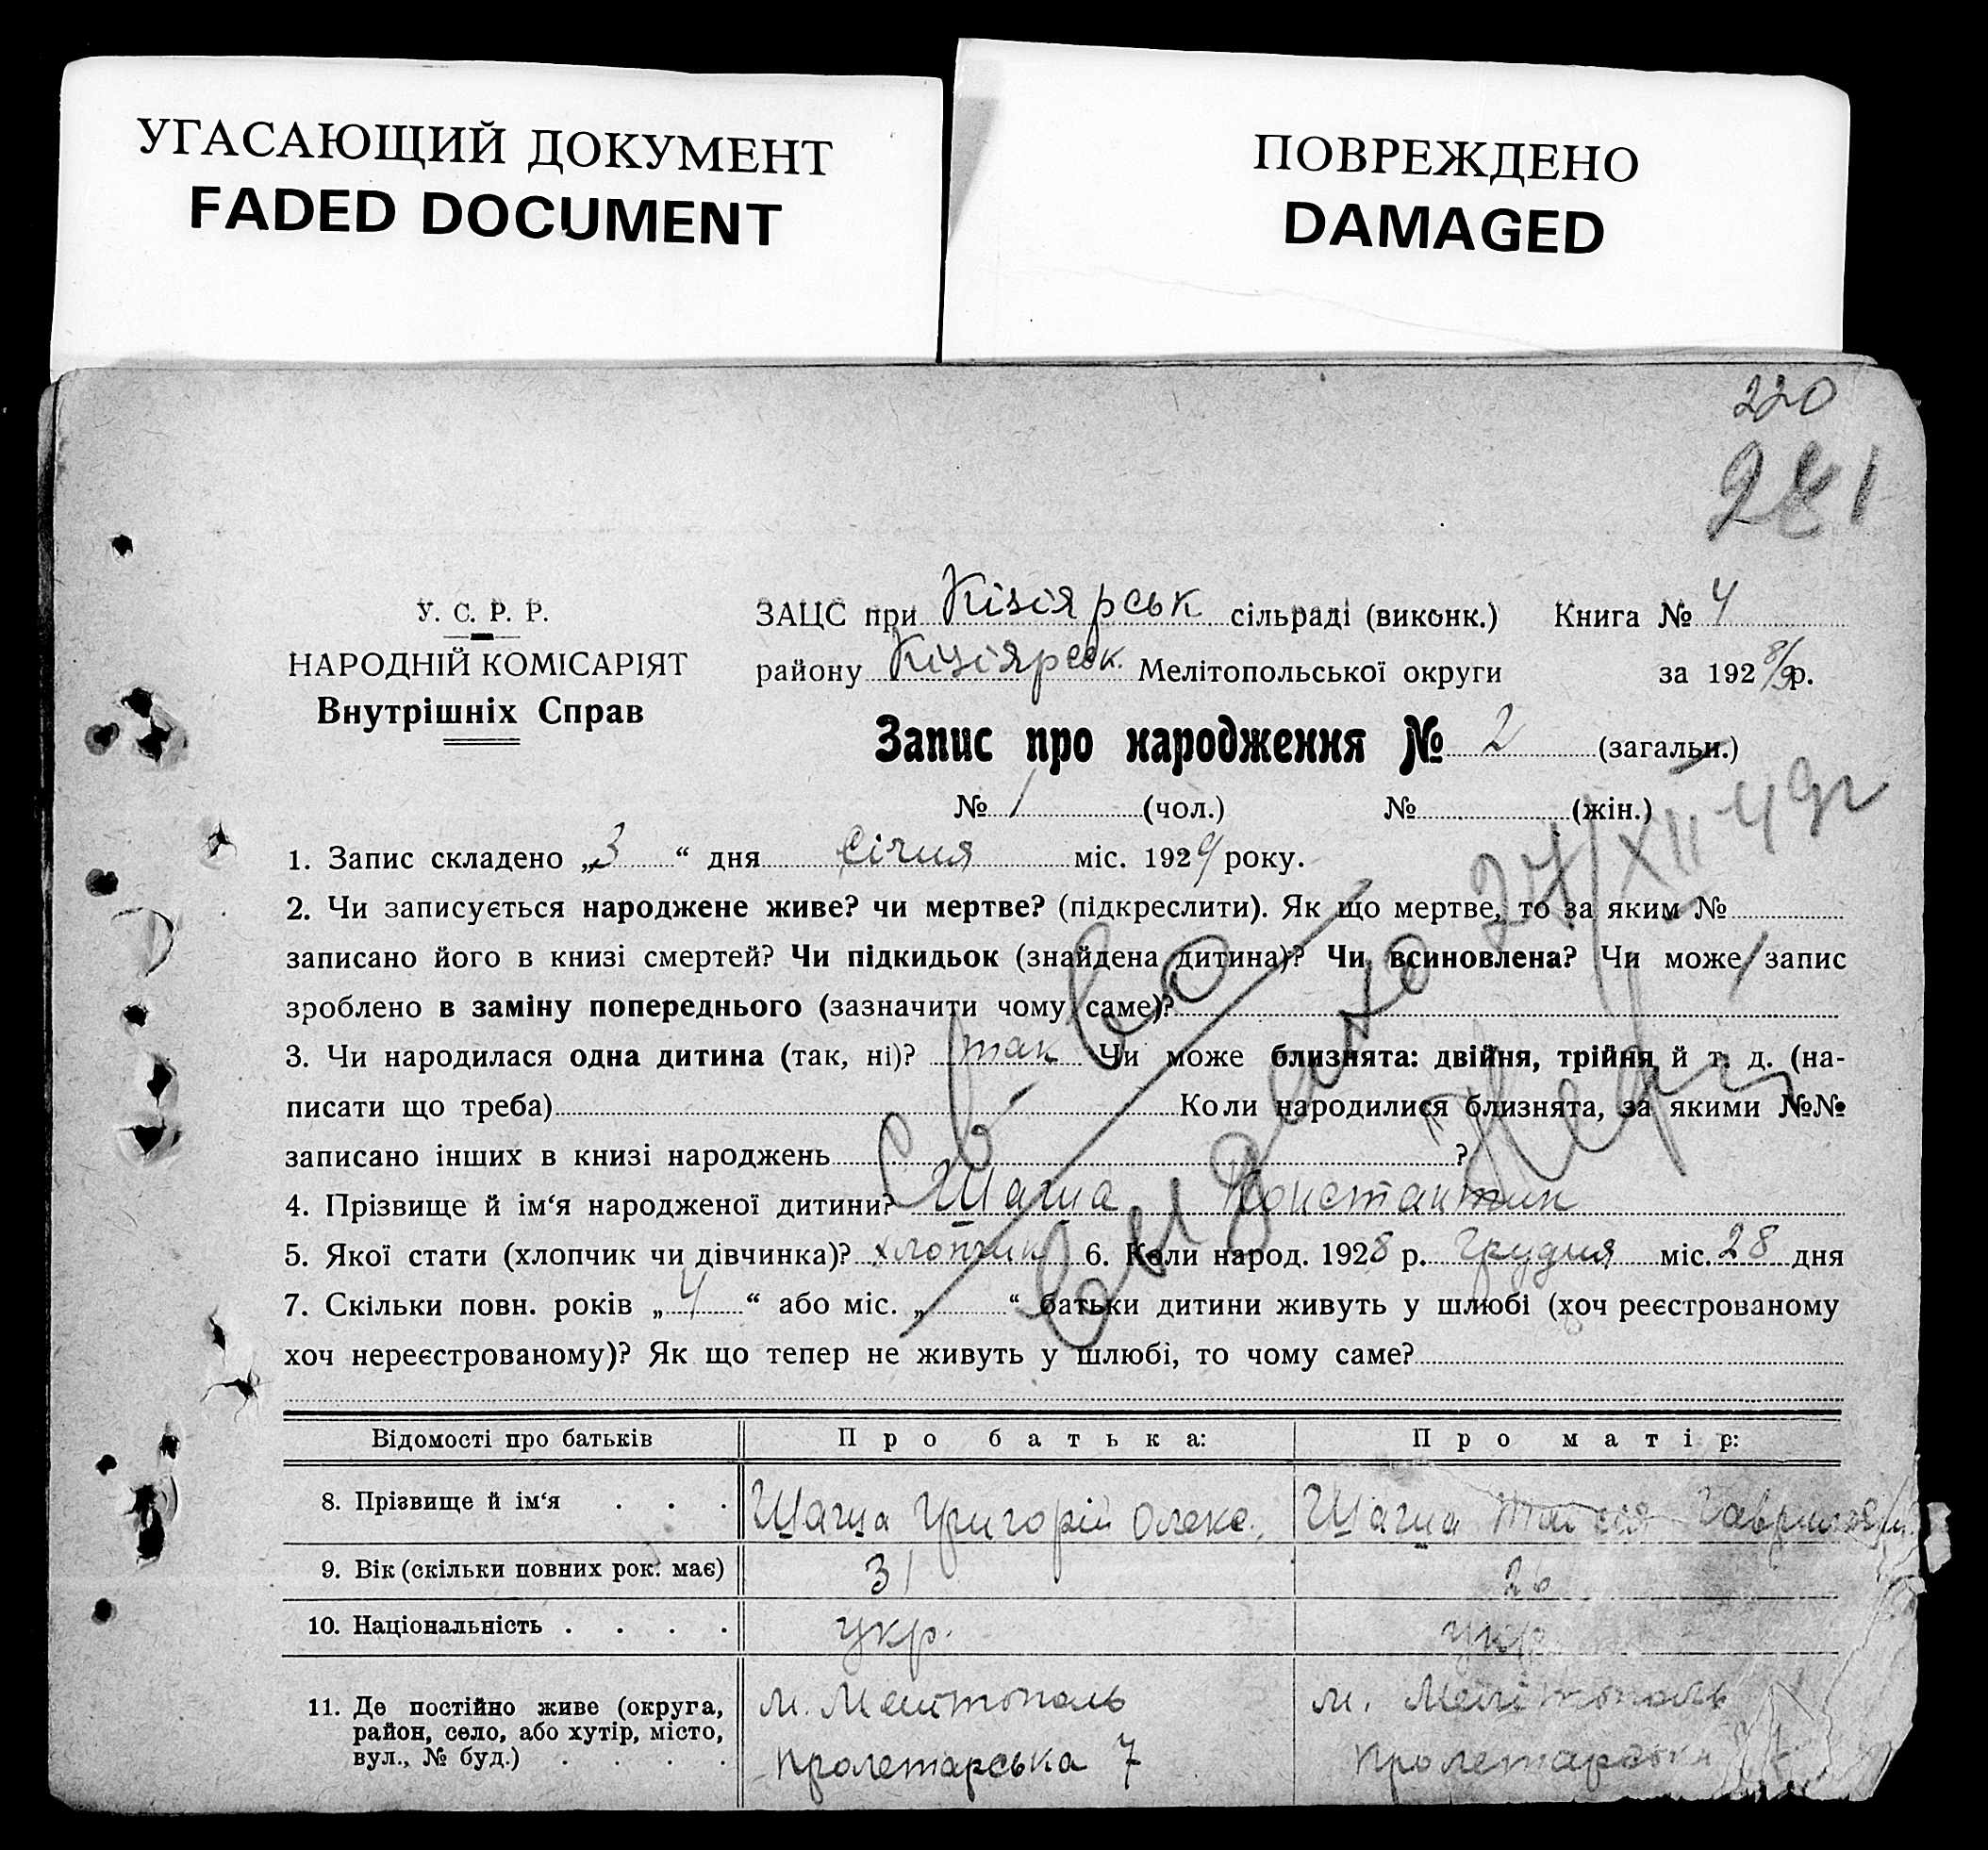 УГАСАЮЩИЙ ДОКУМЕНТ
FADED DOCUMENT
ПОВРЕЖДЕНО
DAMAGED
220
У. С. Р. Р.
НАРОДНІЙ КОМІСАРІЯТ
Внутрішніх Справ
ЗАЦС при Кізіярськ сільраді (виконк.) Книга № 4
району Кізіярськ. Мелітопольської округи за 1928/9р.
Запис про народження № 2 (загальн.)
№ 1 (чол.) № (жін.)
27/XII 49г
1. Запис складено „3“ дня січня міс. 1929 року.
2. Чи записується народжене живе? чи мертве? (підкреслити). Як що мертве, то за яким №
записано його в книзі смертей? Чи підкидьок (знайдена дитина)? Чи всиновлена? Чи може запис
зроблено в заміну попереднього (зазначити чому саме)?
3. Чи народилася одна дитина (так, ні)? так Чи може близнята: двійня, трійня й т. д. (на-
писати що треба) Коли народилися близнята, за якими №№
записано інших в книзі народжень ?
Св-во выдано
4. Прізвище й ім‘я народженої дитини? Щаща Константин
5. Якої стати (хлопчик чи дівчинка)? хлопчик 6. Коли народ. 1928 р. грудня міс. 28 дня
7. Скільки повн. років „4“ або міс. „ “ батьки дитини живуть у шлюбі (хоч реєстрованому
хоч нереєстрованому)? Як що тепер не живуть у шлюбі, то чому саме?
Відомості про батьків Про батька: Про матір:
8. Прізвище й ім‘я . . . Григорій Олекс.
9. Вік (скільки повних рок. має) 31 26
10. Національність . . . . укр. укр.
11. Де постійно живе (округа, м. Мелітополь м. Мелітополь
район, село, або хутір, місто,
вул., № буд.) . . . . Пролетарська 7 Пролетарська 7